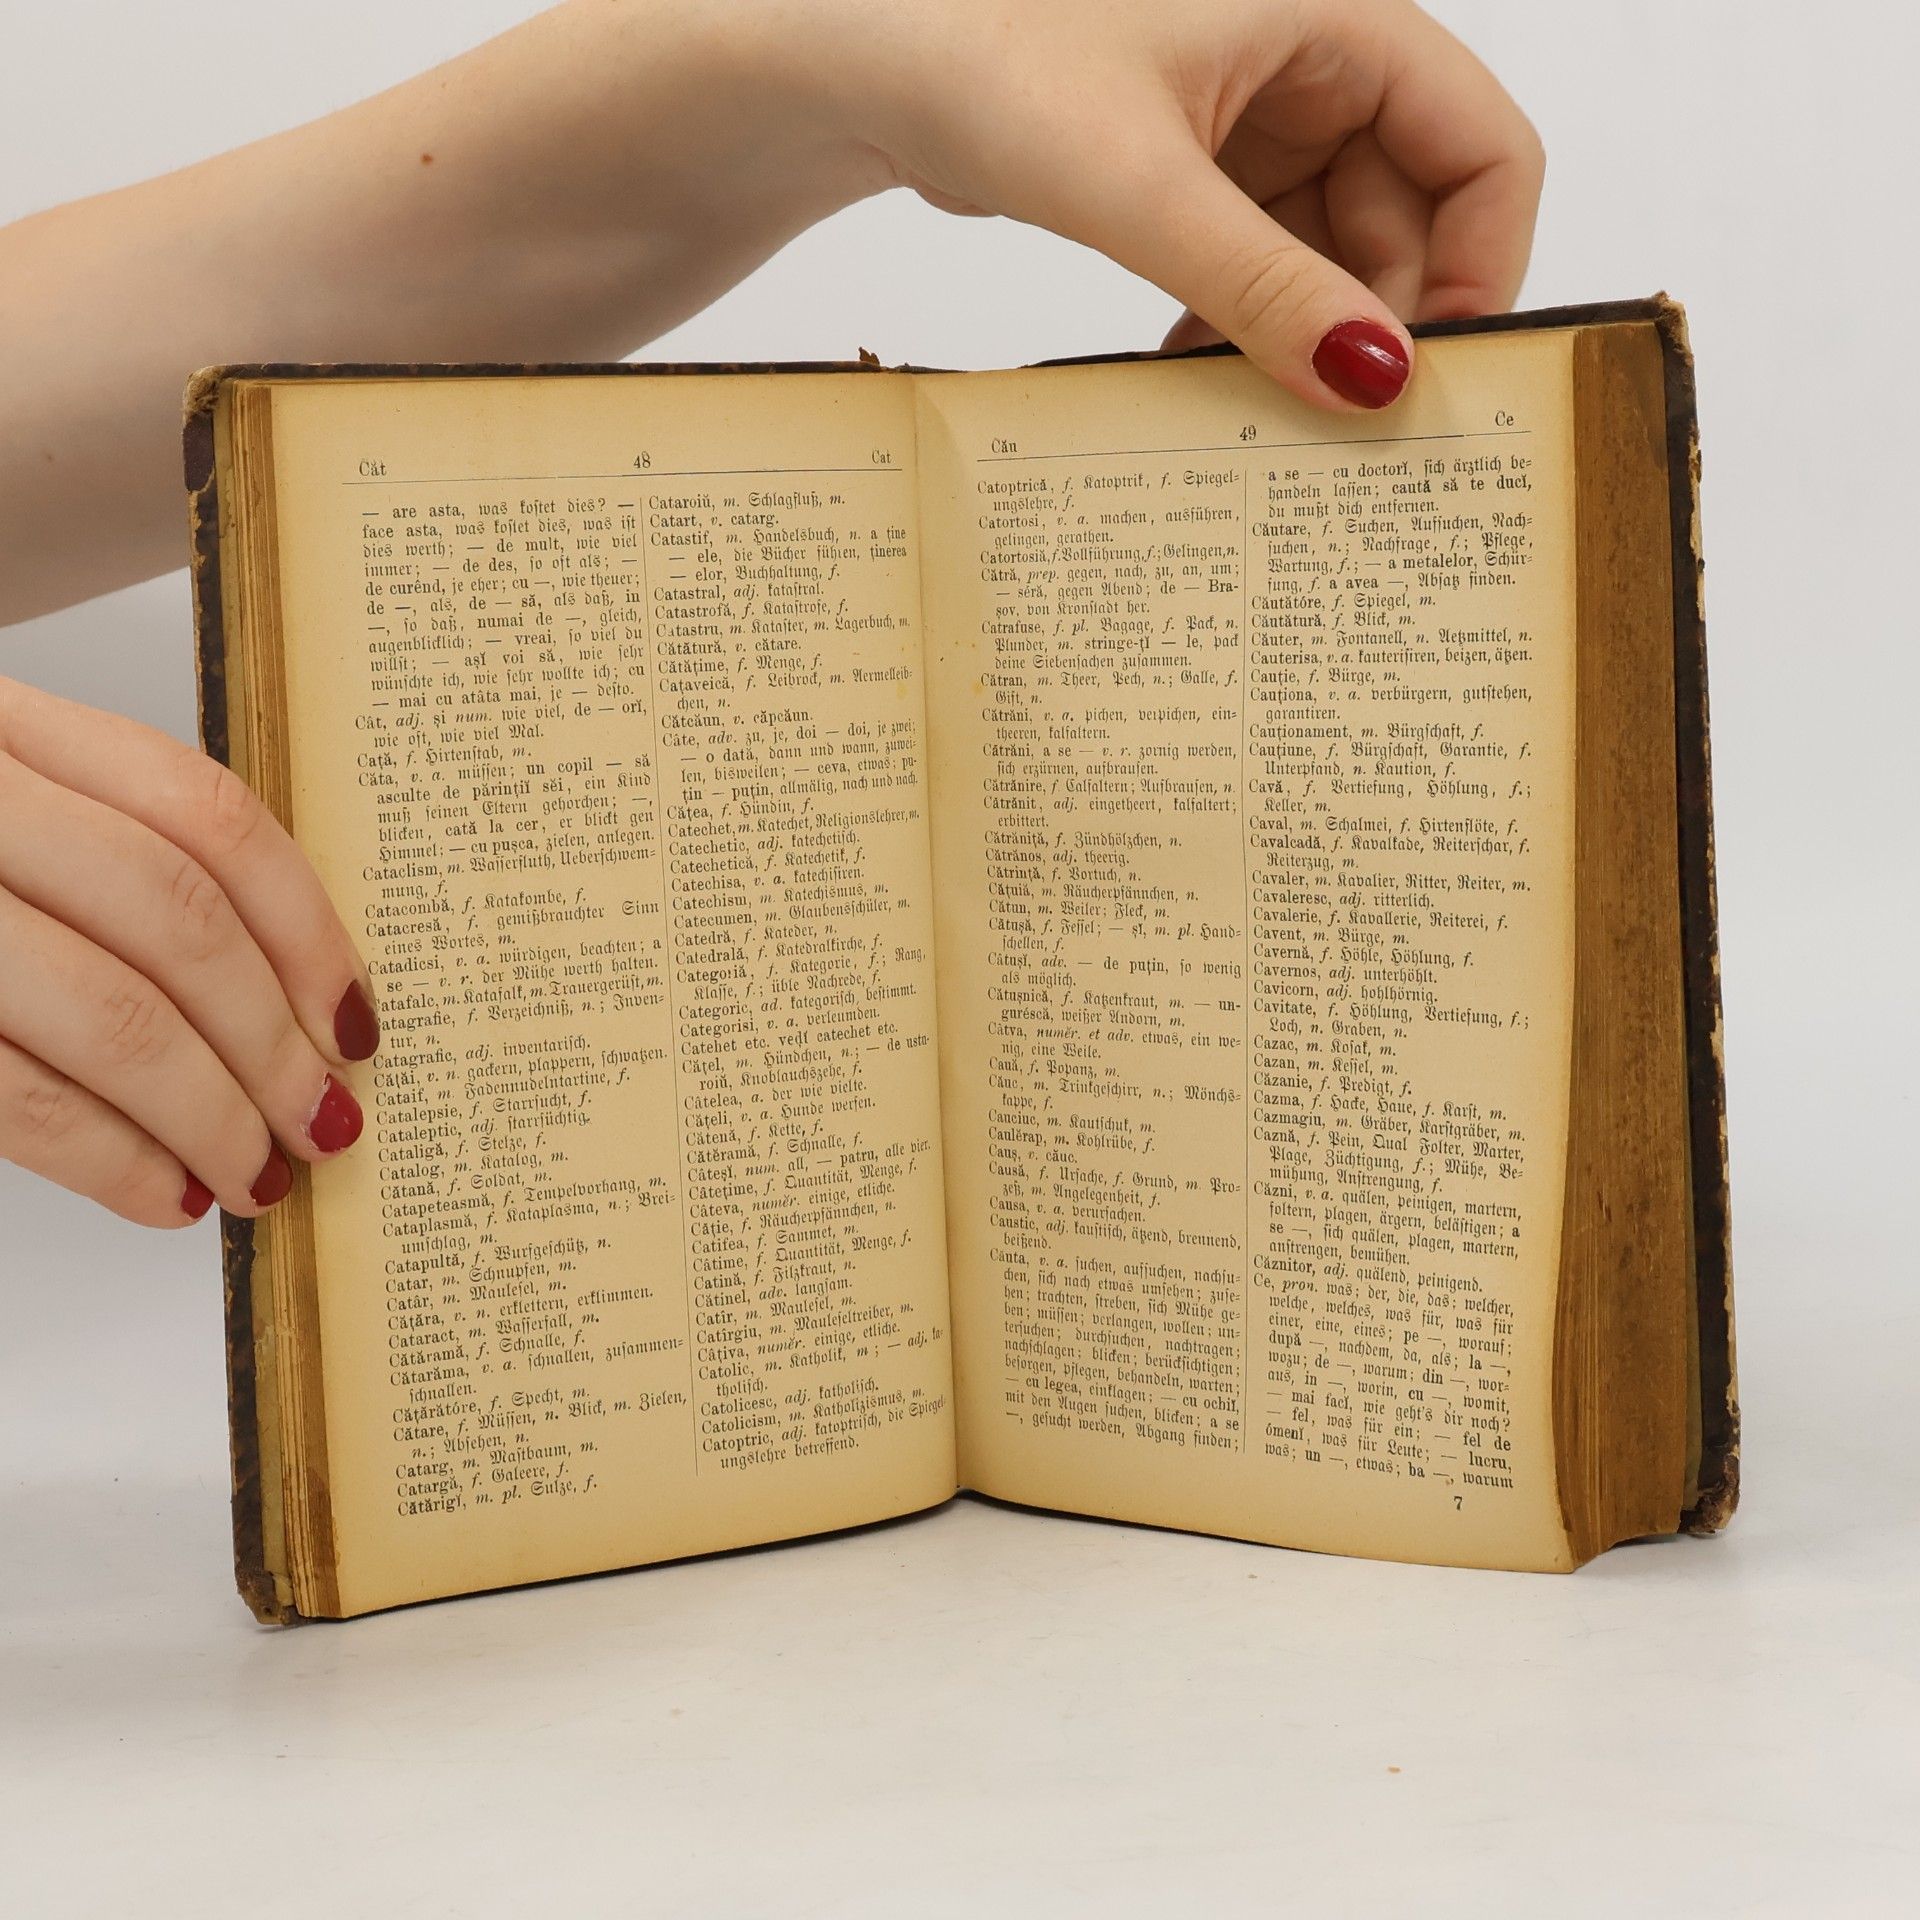 Căt 48 Cat
— are asta, was kostet dies? —
face asta, was kostet dies, was ist
dies werth; — de mult, wie viel
immer; — de des, so oft als; —
de curênd, je eher; cu —, wie theuer;
de —, als, de — să, als daß, in
—, so daß, numai de —, gleich,
augenblicklich; — vreai, so viel du
willst; — așĭ voi să, wie sehr
wünschte ich, wie sehr wollte ich; cu
— mai cu atâta mai, je — desto.
Cât, adj. și num. wie viel, de — orĭ,
wie oft, wie viel Mal.
Cață, f. Hirtenstab, m.
Căta, v. a. müssen; un copil — să
asculte de părințiĭ sěi, ein Kind
muß seinen Eltern gehorchen; —,
blicken, cată la cer, er blickt gen
Himmel; — cu pușca, zielen, anlegen.
Cataclism, m. Wasserfluth, Ueberschwem=
mung, f.
Catacombă, f. Katakombe, f.
Catacresă, f. gemißbrauchter Sinn
eines Wortes, m.
Catadicsi, v. a. würdigen, beachten; a
se — v. r. der Mühe werth halten.
Catafalc, m. Katafalk, m. Trauergerüst, m.
atagrafie, f. Verzeichniß, n.; Inven=
tur, n.
Catagrafic, adj. inventarisch.
Cățăi, v. n. gackern, plappern, schwatzen.
Cataif, m. Fadennudelntartine, f.
Catalepsie, f. Starrsucht, f.
Cataleptic, adj. starrsüchtig.
Cataligă, f. Stelze, f.
Catalog, m. Katalog, m.
Cătană, f. Soldat, m.
Catapeteasmă, f. Tempelvorhang, m.
Cataplasmă, f. Kataplasma, n.; Brei=
umschlag, m.
Catapultă, f. Wurfgeschütz, n.
Catar, m. Schnupfen, m.
Catâr, m. Maulesel, m.
Cățăra, v. n. erklettern, erklimmen.
Cataract, m. Wasserfall, m.
Cătăramă, f. Schnalle, f.
Cătarăma, v. a. schnallen, zusammen=
schnallen.
Cățărătóre, f. Specht, m.
Cătare, f. Müssen, n. Blick, m. Zielen,
n.; Absehen, n.
Catarg, m. Mastbaum, m.
Catargă, f. Galeere, f.
Cătărigĭ, m. pl. Sulze, f.
Cataroiŭ, m. Schlagfluß, m.
Catart, v. catarg.
Catastif, m. Handelsbuch, n. a ține
— ele, die Bücher führen, ținerea
— elor, Buchhaltung, f.
Catastral, adj. katastral.
Catastrofă, f. Katastrofe, f.
Catastru, m. Kataster, m. Lagerbuch, m.
Cătătură, v. cătare.
Cătățime, f. Menge, f.
Cațaveică, f. Leibrock, m. Aermelleib=
chen, n.
Cătcăun, v. căpcăun.
Câte, adv. zu, je, doi — doi, je zwei;
— o dată, dann und wann, zuwei=
len, bisweilen; — ceva, etwas; pu=
țin — puțin, allmälig, nach und nach.
Cățea, f. Hündin, f.
Catechet, m. Katechet, Religionslehrer, m.
Catechetic, adj. katechetisch.
Catechetică, f. Katechetik, f.
Catechisa, v. a. katechisiren.
Catechism, m. Katechismus, m.
Catecumen, m. Glaubensschüler, m.
Catedră, f. Kateder, n.
Catedrală, f. Katedralkirche, f.
Categoriă, f. Kategorie, f.; Rang,
Klasse, f.; üble Nachrede, f.
Categoric, ad. kategorisch, bestimmt.
Categorisi, v. a. verleumden.
Catehet etc. veḑĭ catechet etc.
Cățel, m. Hündchen, n.; — de ustu-
roiŭ, Knoblauchszehe, f.
Câtelea, a. der wie vielte.
Cățeli, v. a. Hunde werfen.
Cătenă, f. Kette, f.
Cătěramă, f. Schnalle, f.
Câteșĭ, num. all, — patru, alle vier.
Câtețime, f. Quantität, Menge, f.
Câteva, numěr. einige, etliche.
Căție, f. Räucherpfännchen, n.
Catifea, f. Sammet, m.
Câtime, f. Quantität, Menge, f.
Catină, f. Filzkraut, n.
Cătinel, adv. langsam.
Catîr, m. Maulesel, m.
Catîrgiu, m. Mauleseltreiber, m.
Câțiva, numěr. einige, etliche.
Catolic, m. Katholik, m; — adj. ka=
tholisch.
Catolicesc, adj. katholisch.
Catolicism, m. Katholizismus, m.
Catoptric, adj. katoptrisch, die Spiegel=
ungslehre betreffend.
Cău 49 Ce
Catoptrică, f. Katoptrik, f. Spiegel=
ungslehre, f.
Catortosi, v. a. machen, ausführen,
gelingen, gerathen.
Catortosiă, f. Vollführung, f.; Gelingen, n.
Cătră, prep. gegen, nach, zu, an, um;
— séră, gegen Abend; de — Bra-
șov, von Kronstadt her.
Catrafuse, f. pl. Bagage, f. Pack, n.
Plunder, m. stringe-țĭ — le, pack
deine Siebensachen zusammen.
Cătran, m. Theer, Pech, n.; Galle, f.
Gift, n.
Cătrăni, v. a. pichen, verpichen, ein=
theeren, kalfaltern.
Cătrăni, a se — v. r. zornig werden,
sich erzürnen, aufbrausen.
Cătrănire, f. Calfaltern; Aufbrausen, n.
Cătrănit, adj. eingetheert, kalfaltert;
erbittert.
Cătrăniță, f. Zündhölzchen, n.
Cătrănos, adj. theerig.
Cătrință, f. Vortuch, n.
Cățuiă, m. Räucherpfännchen, n.
Cătun, m. Weiler; Fleck, m.
Cătușă, f. Fessel; — șĭ, m. pl. Hand=
schellen, f.
Cătușĭ, adv. — de puțin, so wenig
als möglich.
Cătușnică, f. Katzenkraut, m. — un-
gurěscă, weißer Andorn, m.
Câtva, numěr. et adv. etwas, ein we=
nig, eine Weile.
Cauă, f. Popanz, m.
Căuc, m. Trinkgeschirr, n.; Mönchs=
kappe, f.
Cauciuc, m. Kautschuk, m.
Caulěrap, m. Kohlrübe, f.
Cauș, v. căuc.
Causă, f. Ursache, f. Grund, m. Pro=
zeß, m. Angelegenheit, f.
Causa, v. a. verursachen.
Caustic, adj. kaustisch, ätzend, brennend,
beißend.
Căuta, v. a. suchen, aufsuchen, nachsu=
chen, sich nach etwas umsehen; zuse=
hen; trachten, streben, sich Mühe ge=
ben; müssen; verlangen, wollen; un=
tersuchen; durchsuchen, nachtragen;
nachschlagen; blicken; berücksichtigen;
besorgen, pflegen, behandeln, warten;
— cu legea, einklagen; — cu ochiĭ,
mit den Augen suchen, blicken; a se
—, gesucht werden, Abgang finden;
a se — cu doctorĭ, sich ärztlich be=
handeln lassen; caută să te ducĭ,
du mußt dich entfernen.
Căutare, f. Suchen, Aufsuchen, Nach=
suchen, n.; Nachfrage, f.; Pflege,
Wartung, f.; — a metalelor, Schür=
fung, f. a avea —, Absatz finden.
Căutătóre, f. Spiegel, m.
Căutătură, f. Blick, m.
Căuter, m. Fontanell, n. Aetzmittel, n.
Cauterisa, v. a. kauterisiren, beizen, ätzen.
Cauție, f. Bürge, m.
Cauționa, v. a. verbürgen, gutstehen,
garantiren.
Cauționament, m. Bürgschaft, f.
Cauțiune, f. Bürgschaft, Garantie, f.
Unterpfand, n. Kaution, f.
Cavă, f. Vertiefung, Höhlung, f.;
Keller, m.
Caval, m. Schalmei, f. Hirtenflöte, f.
Cavalcadă, f. Kavalkade, Reiterschar, f.
Reiterzug, m.
Cavaler, m. Kavalier, Ritter, Reiter, m.
Cavaleresc, adj. ritterlich.
Cavalerie, f. Kavallerie, Reiterei, f.
Cavent, m. Bürge, m.
Cavernă, f. Höhle, Höhlung, f.
Cavernos, adj. unterhöhlt.
Cavicorn, adj. hohlhörnig.
Cavitate, f. Höhlung, Vertiefung, f.;
Loch, n. Graben, n.
Cazac, m. Kosak, m.
Cazan, m. Kessel, m.
Căzanie, f. Predigt, f.
Cazma, f. Hacke, Haue, f. Karst, m.
Cazmagiu, m. Gräber, Karstgräber, m.
Caznă, f. Pein, Qual Folter, Marter,
Plage, Züchtigung, f.; Mühe, Be=
mühung, Anstrengung, f.
Căzni, v. a. quälen, peinigen, martern,
foltern, plagen, ärgern, belästigen; a
se —, sich quälen, plagen, martern,
anstrengen, bemühen.
Căznitor, adj. quälend, peinigend.
Ce, pron. was; der, die, das; welcher,
welche, welches, was für, was für
einer, eine, eines; pe —, worauf;
după —, nachdem, da, als; la —,
wozu; de —, warum; din —, wor=
aus, in —, worin, cu —, womit,
— mai facĭ, wie geht's dir noch?
— fel, was für ein; — fel de
ómenĭ, was für Leute; — lucru,
was; un —, etwas; ba —, warum
7